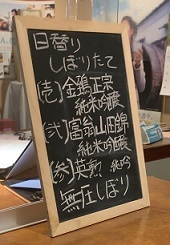 日替り
しぼりたて
(壱)金鵄正宗
純米吟醸
(弐)富翁山田錦
純米吟醸
(参)英勲 純吟
無圧しぼり